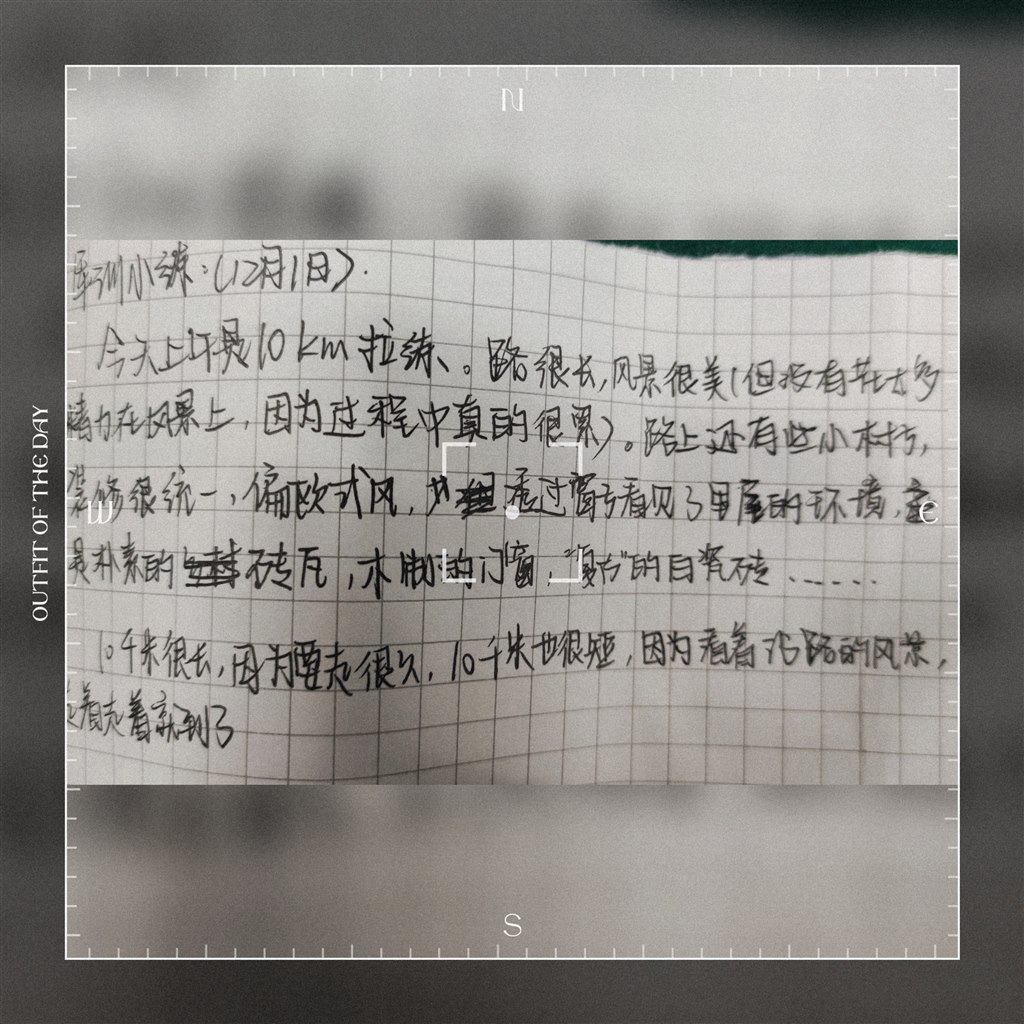 N
军训小练:(12月1日).
今天上午是10km拉练、。路很长,风景很美(但没有花太多
精力在风景上,因为过程中真的很累)。路上还有些小村庄,
装修很统一,偏欧式风,透过窗看见了里屋的环境,
是朴素的砖瓦,木制的门窗,"复古"的白瓷砖......
10千米很长,因为要走很久,10千米也很短,因为看着沿路的风景,
走着走着就到了
W
E
S
OUTFIT OF THE DAY